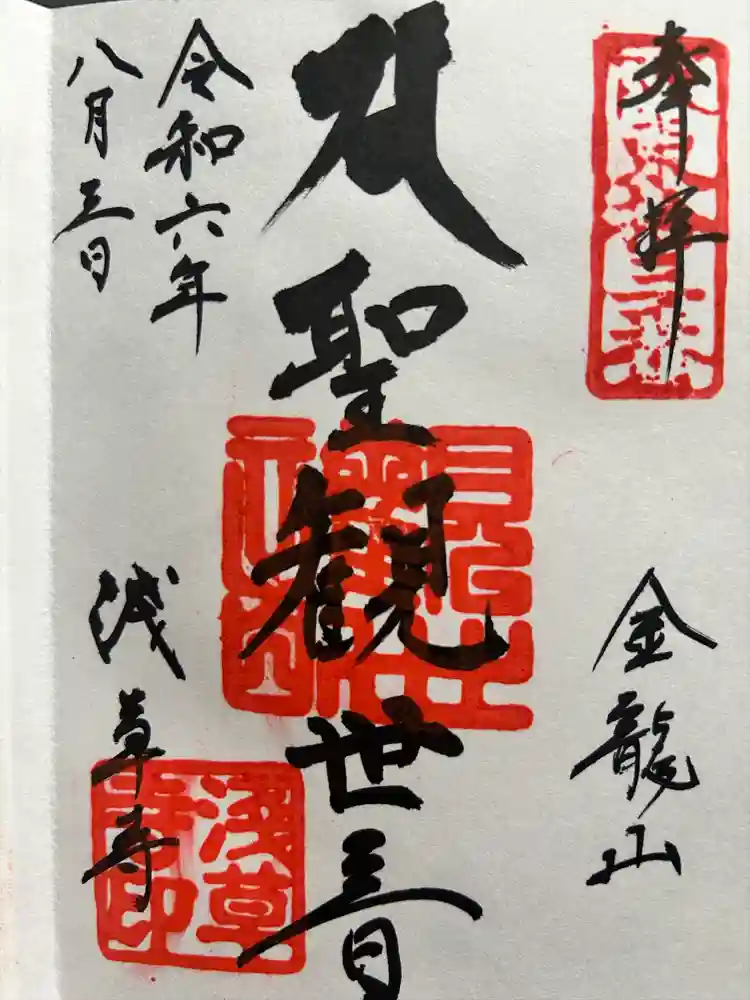 奉拝
金龍山
聖観世音
令和六年
八月三日
浅草寺
淺草
寺印